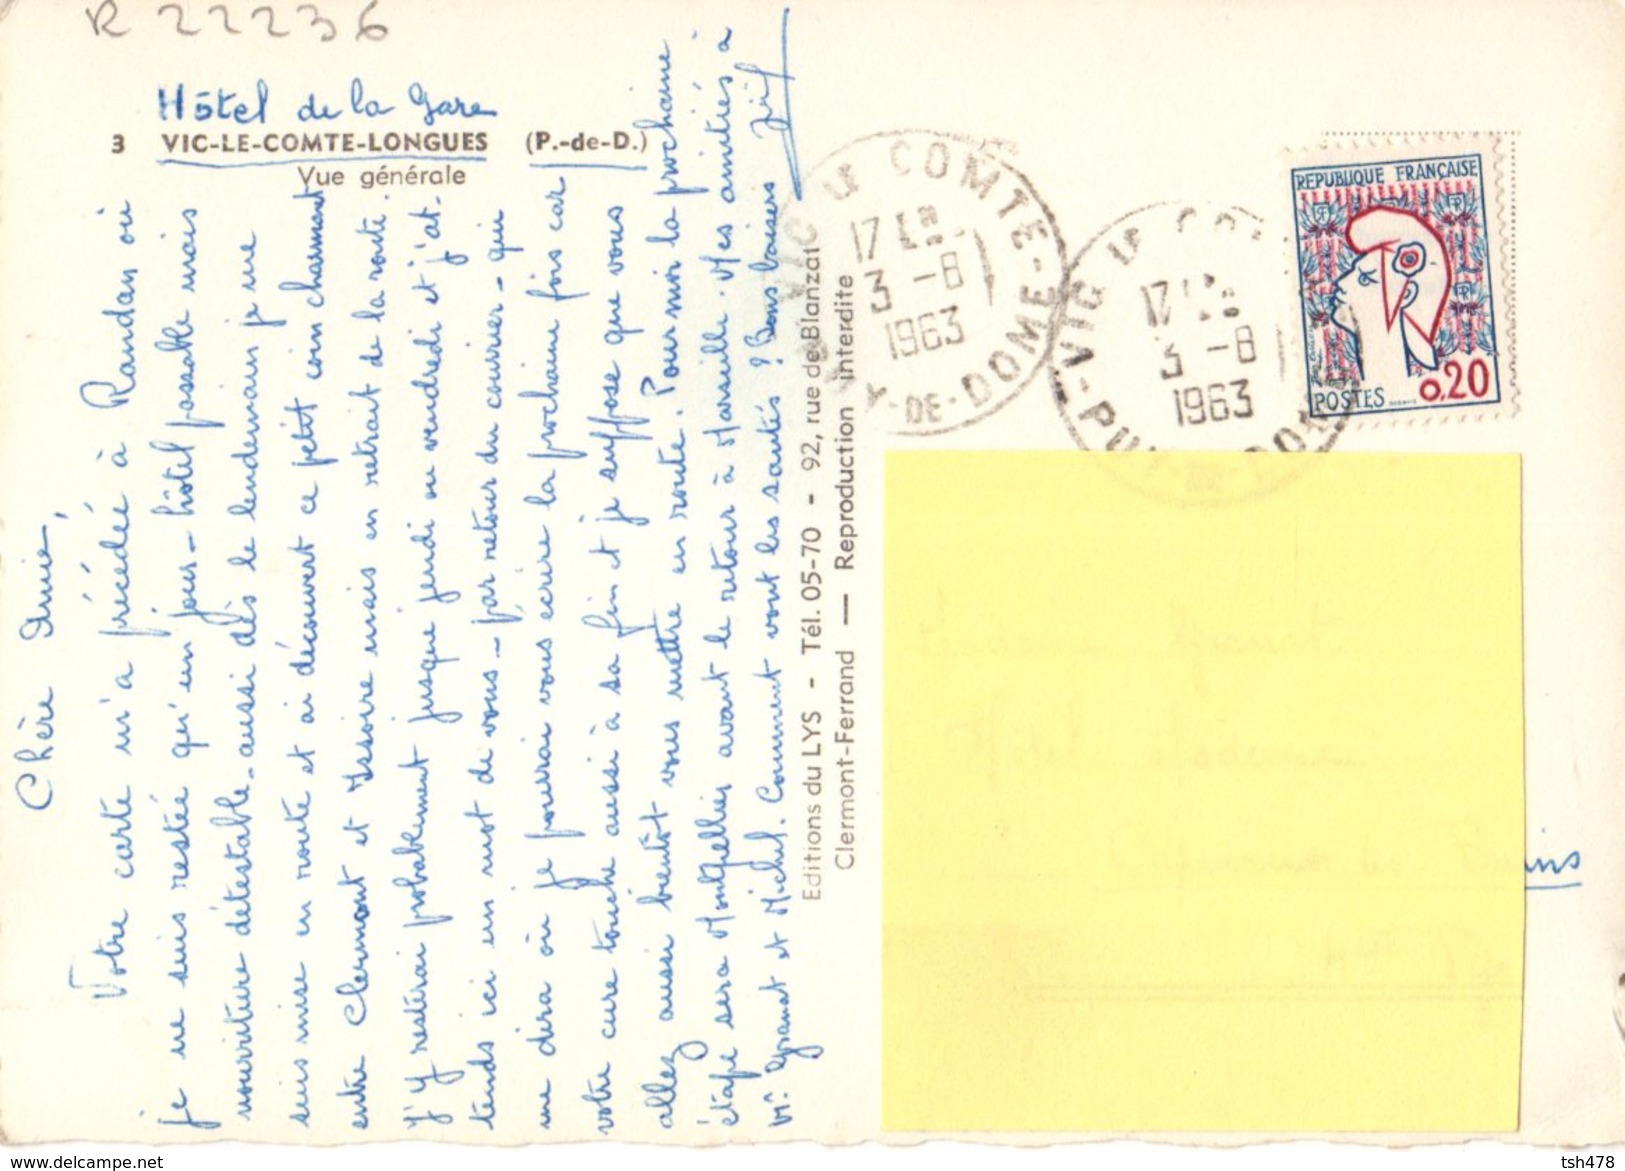 R 22236
Hôtel de la Gare
3 VIC-LE-COMTE-LONGUES (P.-de-D.)
Vue générale
Chère Amie,
Votre carte m'a précédée à Randan où
je ne suis restée qu'un jour - hôtel passable mais
nourriture détestable - aussi dès le lendemain je me
suis mise en route et ai découvert ce petit coin charmant
entre Clermont et Issoire mais en retrait de la route.
J'y resterai probablement jusque jeudi ou vendredi et j'at-
tends ici un mot de vous - par retour du courrier - qui
me dira où je pourrai vous écrire la prochaine fois car
votre cure touche aussi à sa fin et je suppose que vous
allez aussi bientôt vous mettre en route. Pour moi la prochaine
étape sera Montpellier avant le retour à Marseille. Mes amitiés à
Mr. et Michel. Comment vont les santés ? Bons baisers
Editions du LYS - Tél. 05-70 - 92, rue de Blanzat
Clermont-Ferrand — Reproduction interdite
VIC LE COMTE
17
3 -8
1963
PUY-DE-DOME
VIC LE COMTE
17
3 -8
1963
PUY-DE-DOME
REPUBLIQUE FRANÇAISE
POSTES 0,20
ins
www.delcampe.net
tsh478